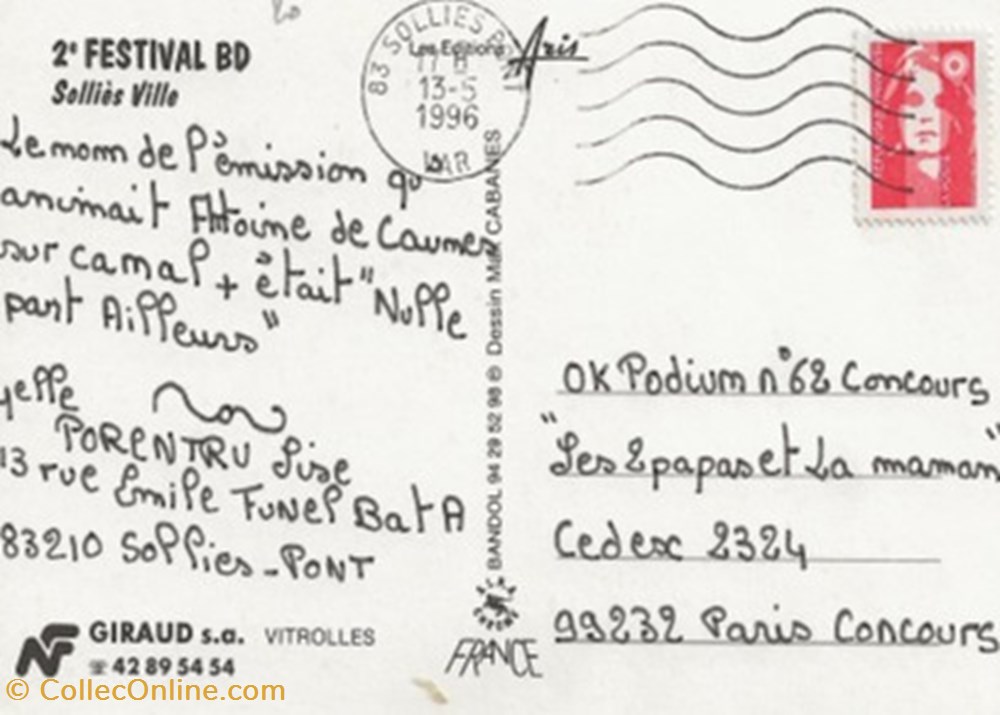 2e FESTIVAL BD
Solliès Ville
Le nom de l'émission qu
animait Antoine de Caunes
sur canal + était "Nulle
part Ailleurs"
PORENTRU Lise
13 rue Emile FUNel Bat A
83210 Sollies-PONT
GIRAUD s.a. VITROLLES
☎ 42 89 54 54
83 SOLLIES
Les Editions Aris
13-5
1996
VAR
BANDOL 94 29 52 98 © Dessin Max CABANES
FRANCE
OK Podium n°62 Concours
"Les 2 papas et La maman"
Cedex 2324
99232 Paris Concours
© CollecOnline.com